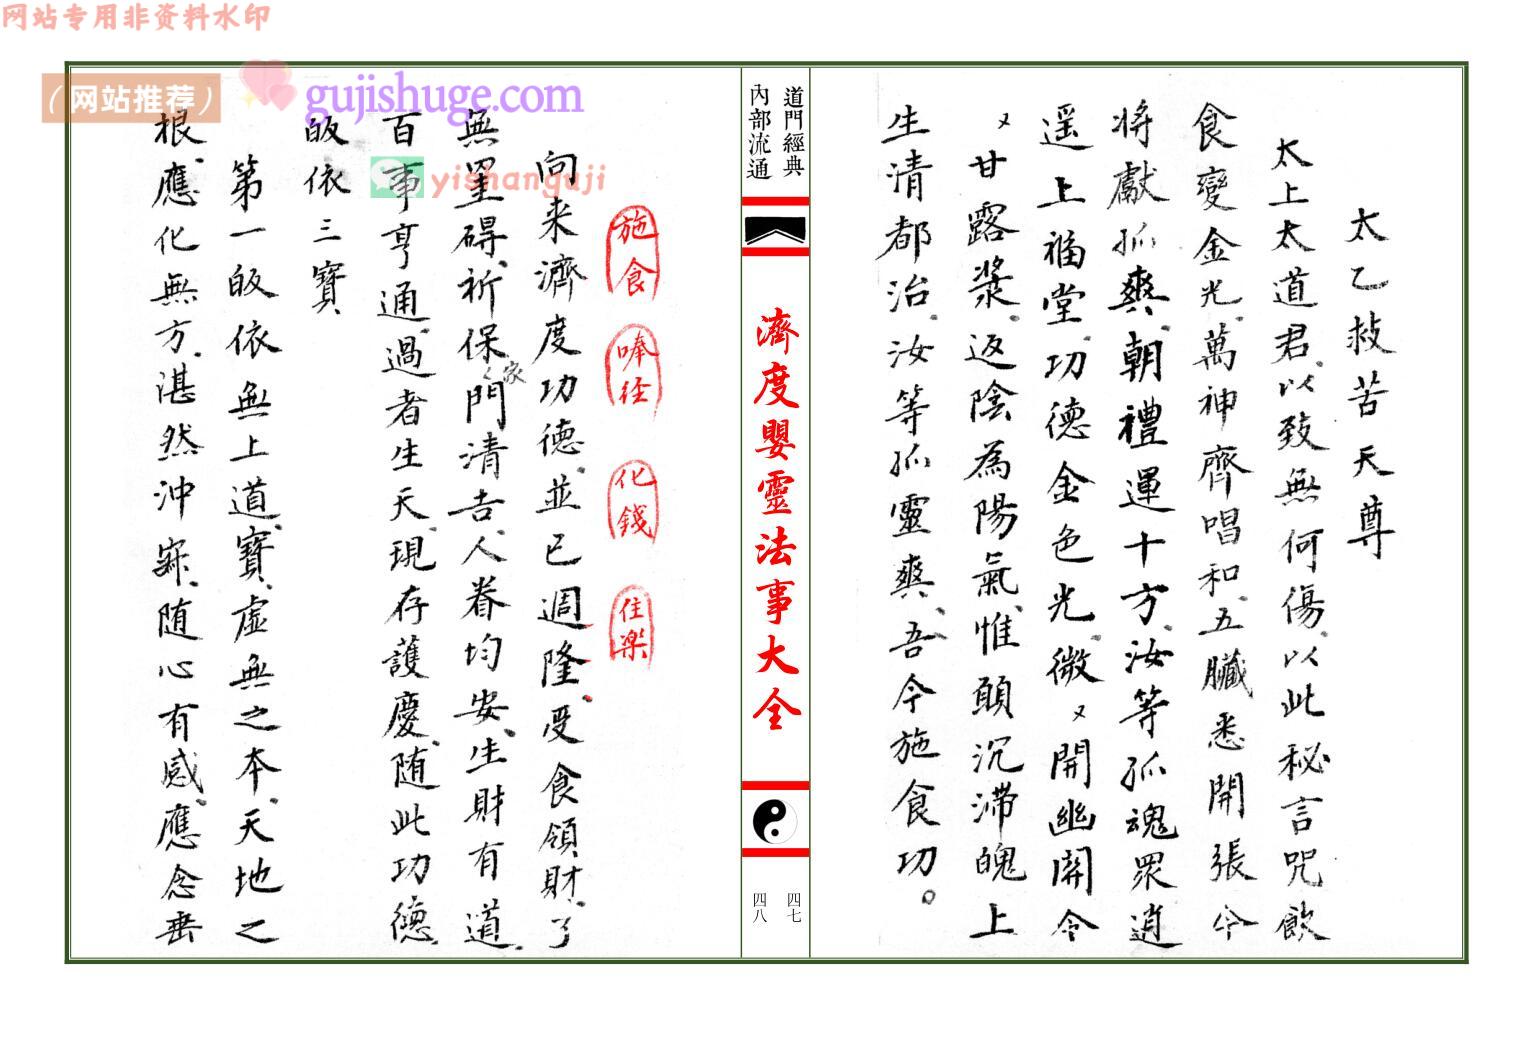 网站专用非资料水印
（网站推荐）
gujishuge.com
yishanguji
太乙救苦天尊
太上太道君、以致無何傷、以此秘言咒飲
食變金光、萬神齊唱和、五臟悉開張今
将獻孤爽、朝禮運十方、汝等孤魂眾逍
遥上福堂、功德金色光、微〻開幽関今
〻甘露漿。返陰為陽氣、惟願沉滯魄上
生清都治、汝等孤靈爽、吾今施食功。
道門經典
內部流通
濟度嬰靈法事大全
四七
四八
施食
唪经
化錢
住樂
向来濟度功德、並已週隆、受食領財、了
無罣碍、祈保家門清吉、人眷均安、生財有道、
百事亨通、過者生天、現存護慶、随此功德、
皈依三寶、
第一皈依無上道、寶、虛無之本、天地之
根、應化無方、湛然沖寂、随心有感、應念垂